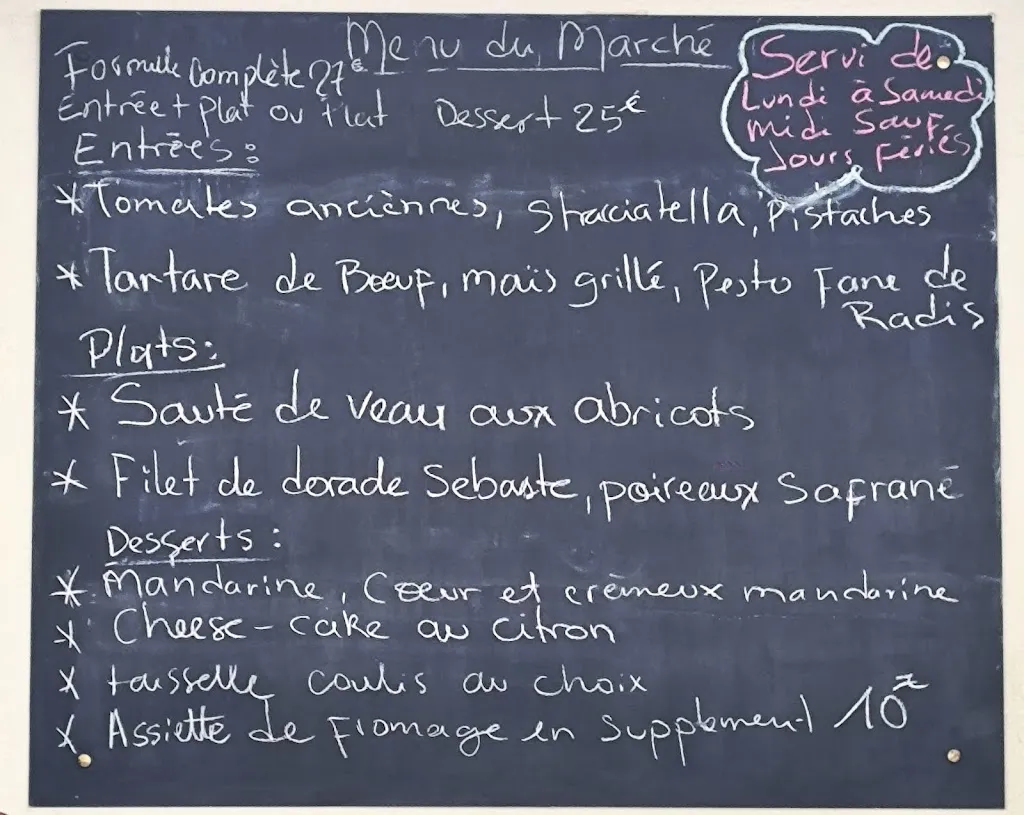 Menu du Marché
Formule Complète 27€
Entrée + Plat ou Plat Dessert 25€
Servi de
Lundi à Samedi
midi Sauf
Jours fériés
Entrées :
* Tomates anciènnes, Stracciatella, Pistaches
* Tartare de Bœuf, maïs grillé, Pesto Fane de
Radis
Plats :
* Sauté de veau aux abricots
* Filet de dorade Sebaste, poireaux Safrané
Desserts :
* Mandarine, Cœur et crèmeux mandarine
* Cheese-cake au citron
* faisselle coulis au choix
* Assiette de fromage en supplement 10€